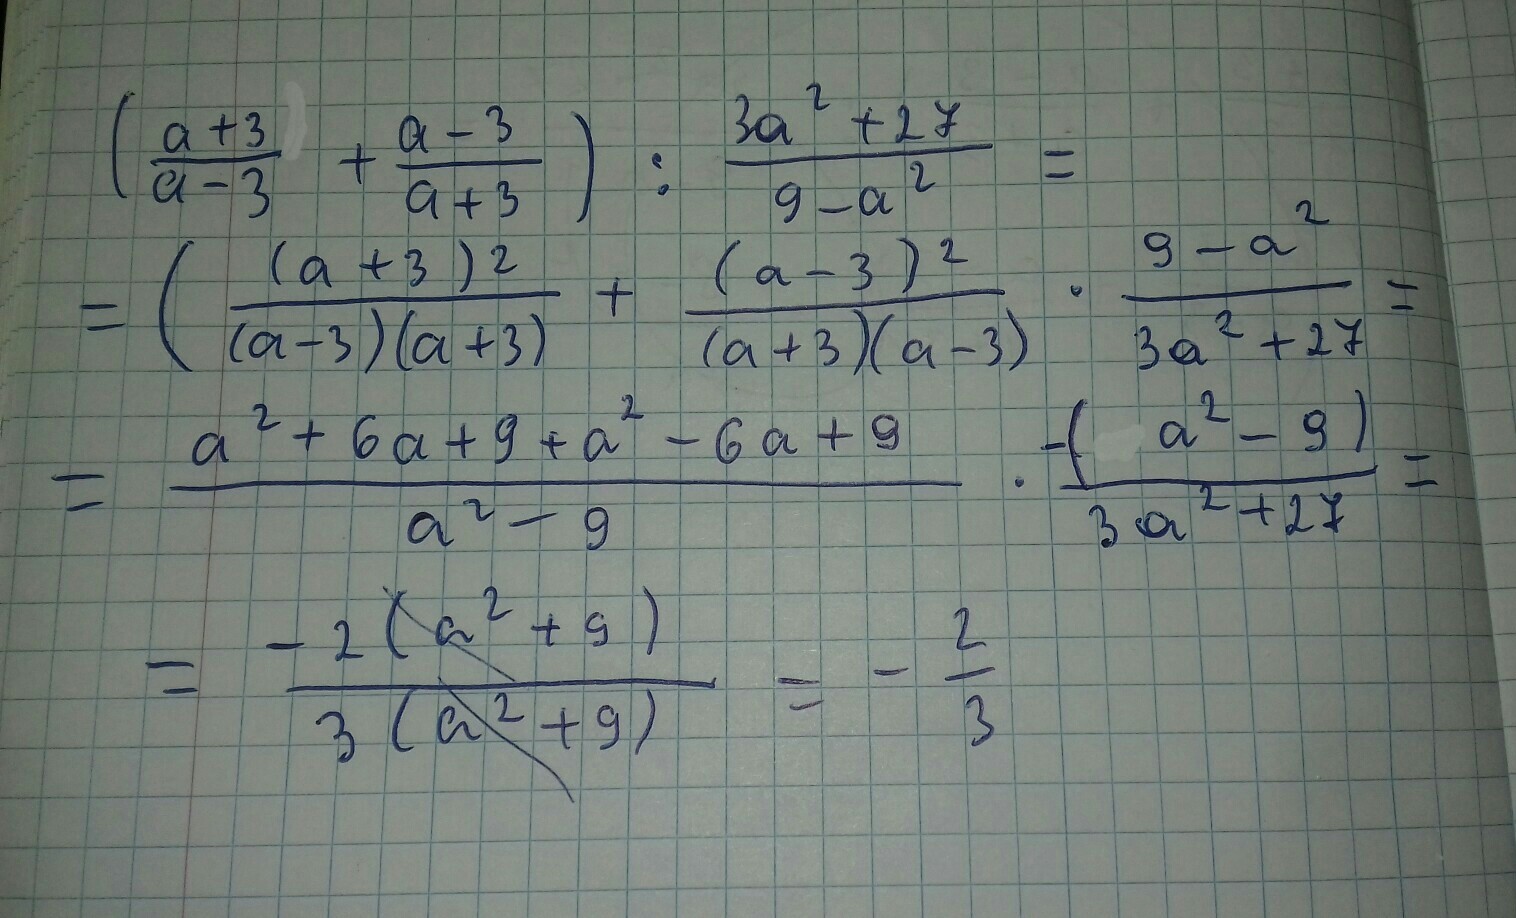 ( (a+3)/(a-3) + (a-3)/(a+3) ) : (3a²+27)/(9-a²) =
= ( (a+3)²/((a-3)(a+3)) + (a-3)²/((a+3)(a-3)) · (9-a²)/(3a²+27) =
= (a²+6a+9+a²-6a+9)/(a²-9) · -(a²-9)/(3a²+27) =
= -2(a²+9)/(3(a²+9)) = - 2/3